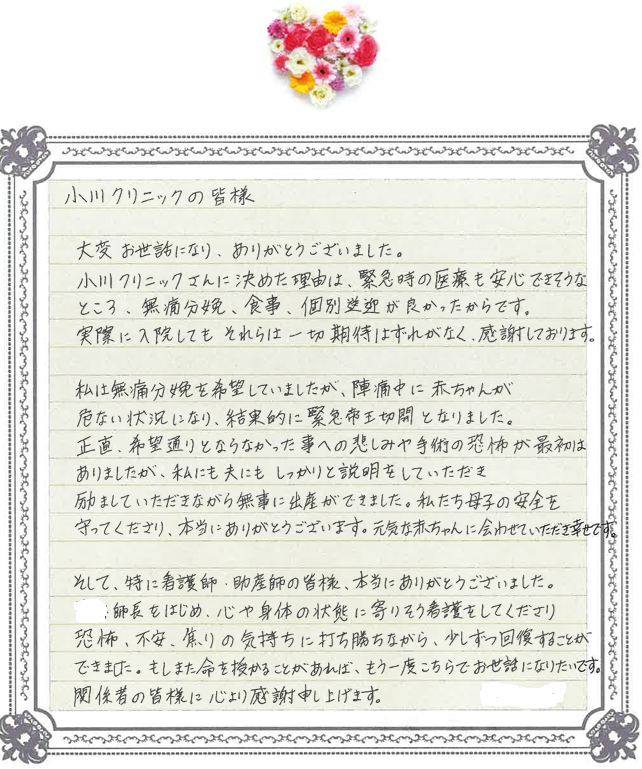 小川クリニックの皆様
大変お世話になり、ありがとうございました。
小川クリニックさんに決めた理由は、緊急時の医療も安心できそうな
ところ、無痛分娩、食事、個別送迎が良かったからです。
実際に入院してもそれらは一切期待はずれがなく、感謝しております。
私は無痛分娩を希望していましたが、陣痛中に赤ちゃんが
危ない状況になり、結果的に緊急帝王切開となりました。
正直、希望通りとならなかった事への悲しみや手術の恐怖が最初は
ありましたが、私にも夫にもしっかりと説明をしていただき
励ましていただきながら無事に出産ができました。私たち母子の安全を
守ってくださり、本当にありがとうございます。元気な赤ちゃんに会わせていただき幸せです。
そして、特に看護師・助産師の皆様、本当にありがとうございました。
師長をはじめ、心や身体の状態に寄りそう看護をしてくださり
恐怖、不安、焦りの気持ちに打ち勝ちながら、少しずつ回復することが
できました。もしまた命を授かることがあれば、もう一度こちらでお世話になりたいです。
関係者の皆様に心より感謝申し上げます。